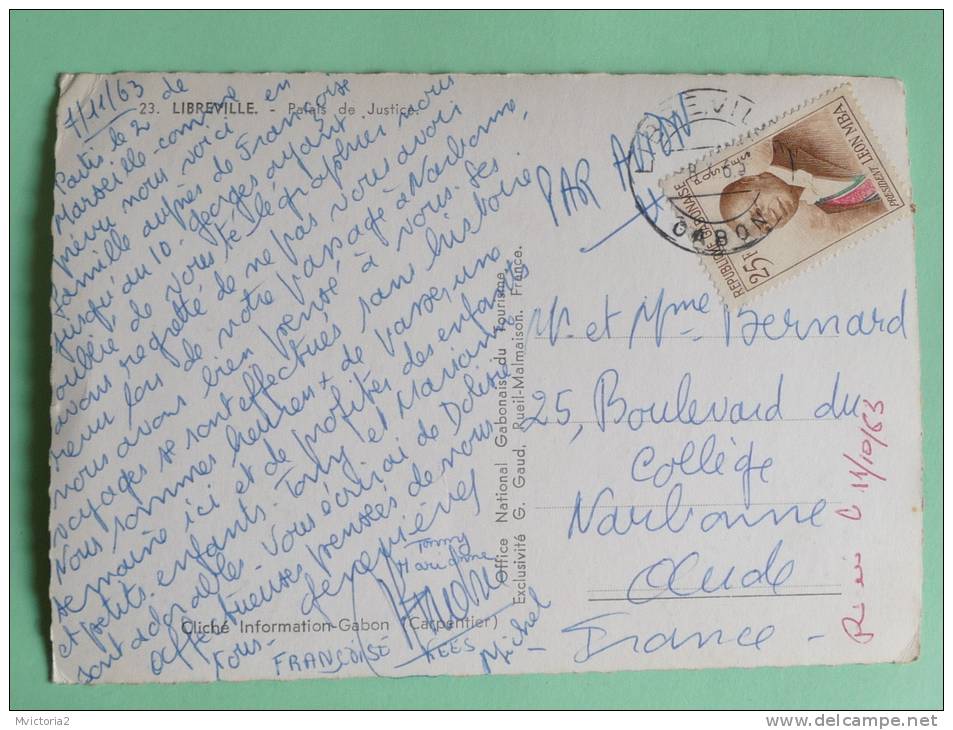 23. LIBREVILLE. - Palais de Justice.
7/11/63
Partis le 2 de
Marseille comme
prévu nous voici en
famille auprès de Françoise
jusqu'au 10. Georges ayant
oublié de vous télégraphier nous
avons regretté de ne pas vous avoir
revu lors de notre passage à Narbonne,
nous avons bien pensé à vous. Les
voyages se sont effectués sans histoire
Nous sommes heureux de passer une
semaine ici et de profiter des enfants
et petits enfants. Tony et Marianne
sont adorables. Vous écrirai de Dolisie
affectueuses pensées de nous
Tous -
Geneviève
Tommy
Marianne
FRANÇOISE
KEES
Michel
Cliché Information-Gabon (Carpentier)
Office National Gabonais du Tourisme
Exclusivité G. Gaud, Rueil-Malmaison, France.
PAR AVION
RÉPUBLIQUE GABONAISE
25F
PRÉSIDENT LÉON MBA
LIBREVILLE
GABON
Mr et Mme Bernard
25, Boulevard du
Collège
Narbonne
Aude
France -
11/10/63
Mvictoria2
delcampe.net